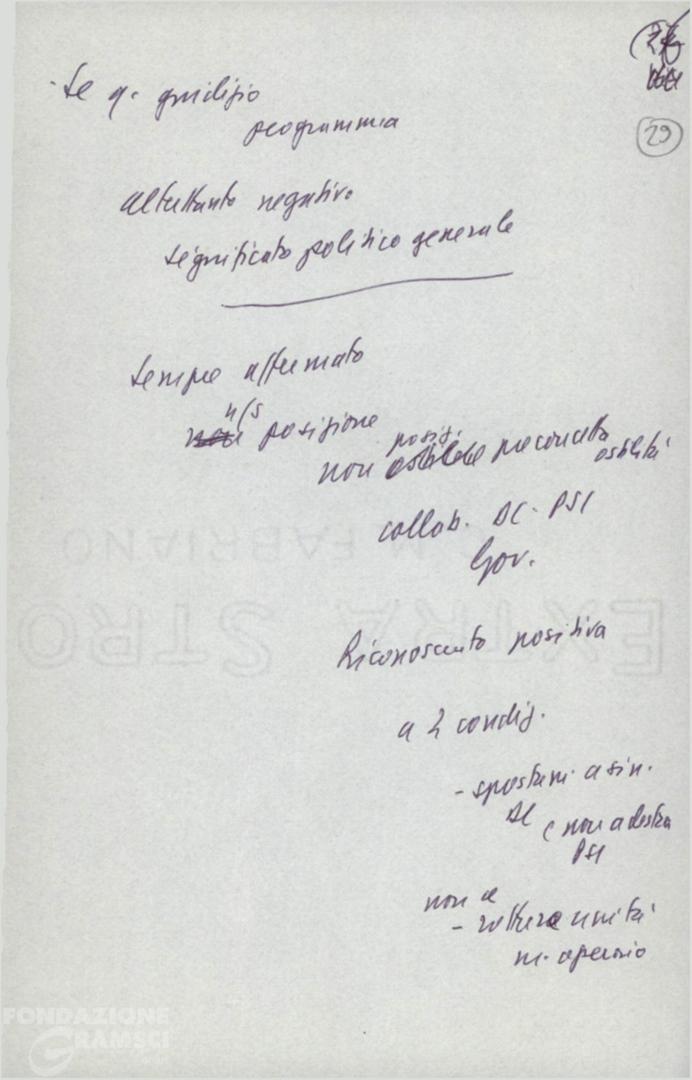 29
- Se q. giudizio
programma
altrettanto negativo
significato politico generale
sempre affermato
n/s posizione
non posiz. preconcetta ostilità
collab. DC-PSI
Gov.
Riconosciuto positiva
a 2 condiz.
- spostam. a sin.
DC (non a destra
PSI
non a
- rottura unità
m. operaio
C.M. FABRIANO
EXTRA STRO
FONDAZIONE
GRAMSCI